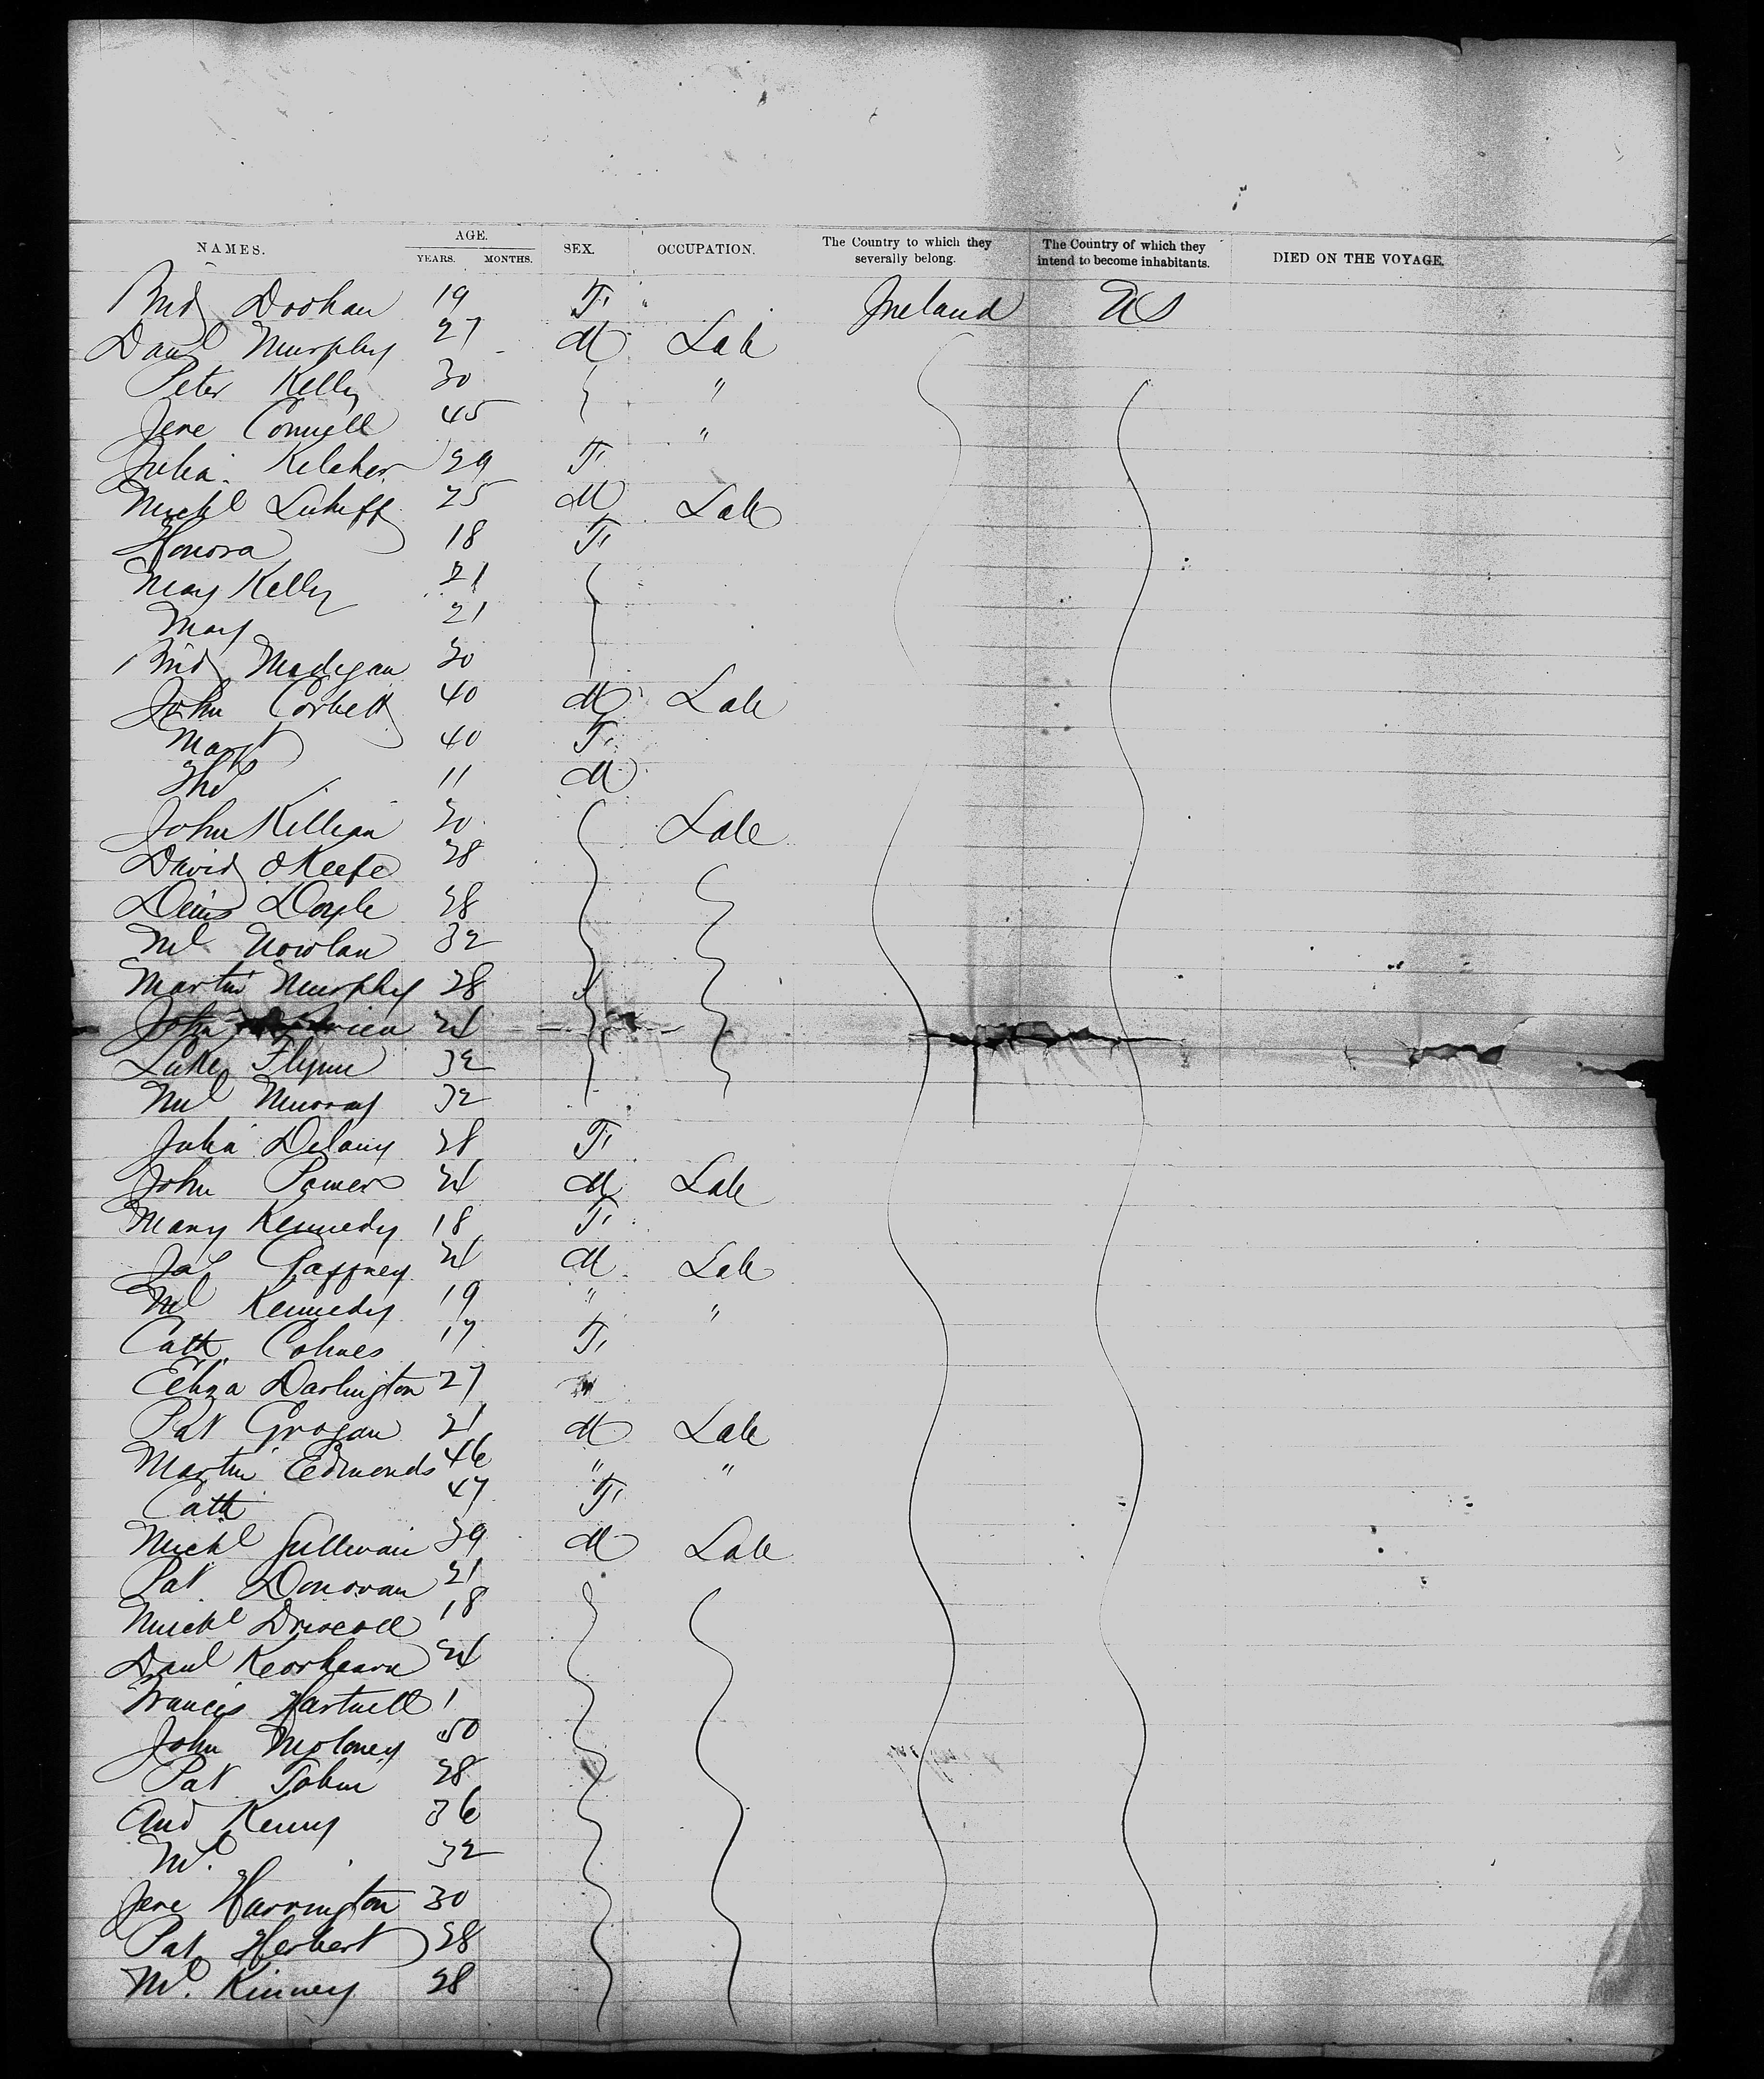 NAMES. AGE. YEARS. MONTHS. SEX. OCCUPATION. The Country to which they severally belong. The Country of which they intend to become inhabitants. DIED ON THE VOYAGE.
Brid Doohan 19 F " Ireland US
Danl Murphy 27 M Lab
Peter Kelly 30 "
Jere Connell 45 "
Julia Keleher 29 F
Michl 25 M Lab
Honora 18 F
Mary Kelly 21
Mary 21
Brid Madigan 30
John Corbett 40 M Lab
Margt 40 F
Tho 11 M
John Killian 30 Lab
David OKeefe 28
Denis Doyle 28
Ml Nowlan 32
Martin Murphy 28
John 24
Luke Flynn 32
Ml Murray 32
Julia Delany 28 F
John Powers 24 M Lab
Mary Kennedy 18 F
Jas Gaffney 24 M Lab
Ml Kennedy 19 " "
Cath 17 F
Eliza Darlington 27 "
Pat Grogan 21 M Lab
Martin Edmonds 46 " "
Cath 47 F
Michl Sullivan 39 M Lab
Pat Donovan 21
Michl Driscoll 18
Danl 24
Francis Hartnell 1
John Moloney 50
Pat Tobin 28
And Kenny 36
Ml. 32
Jere Harrington 30
Pat Herbert 28
Ml. Kinney 28